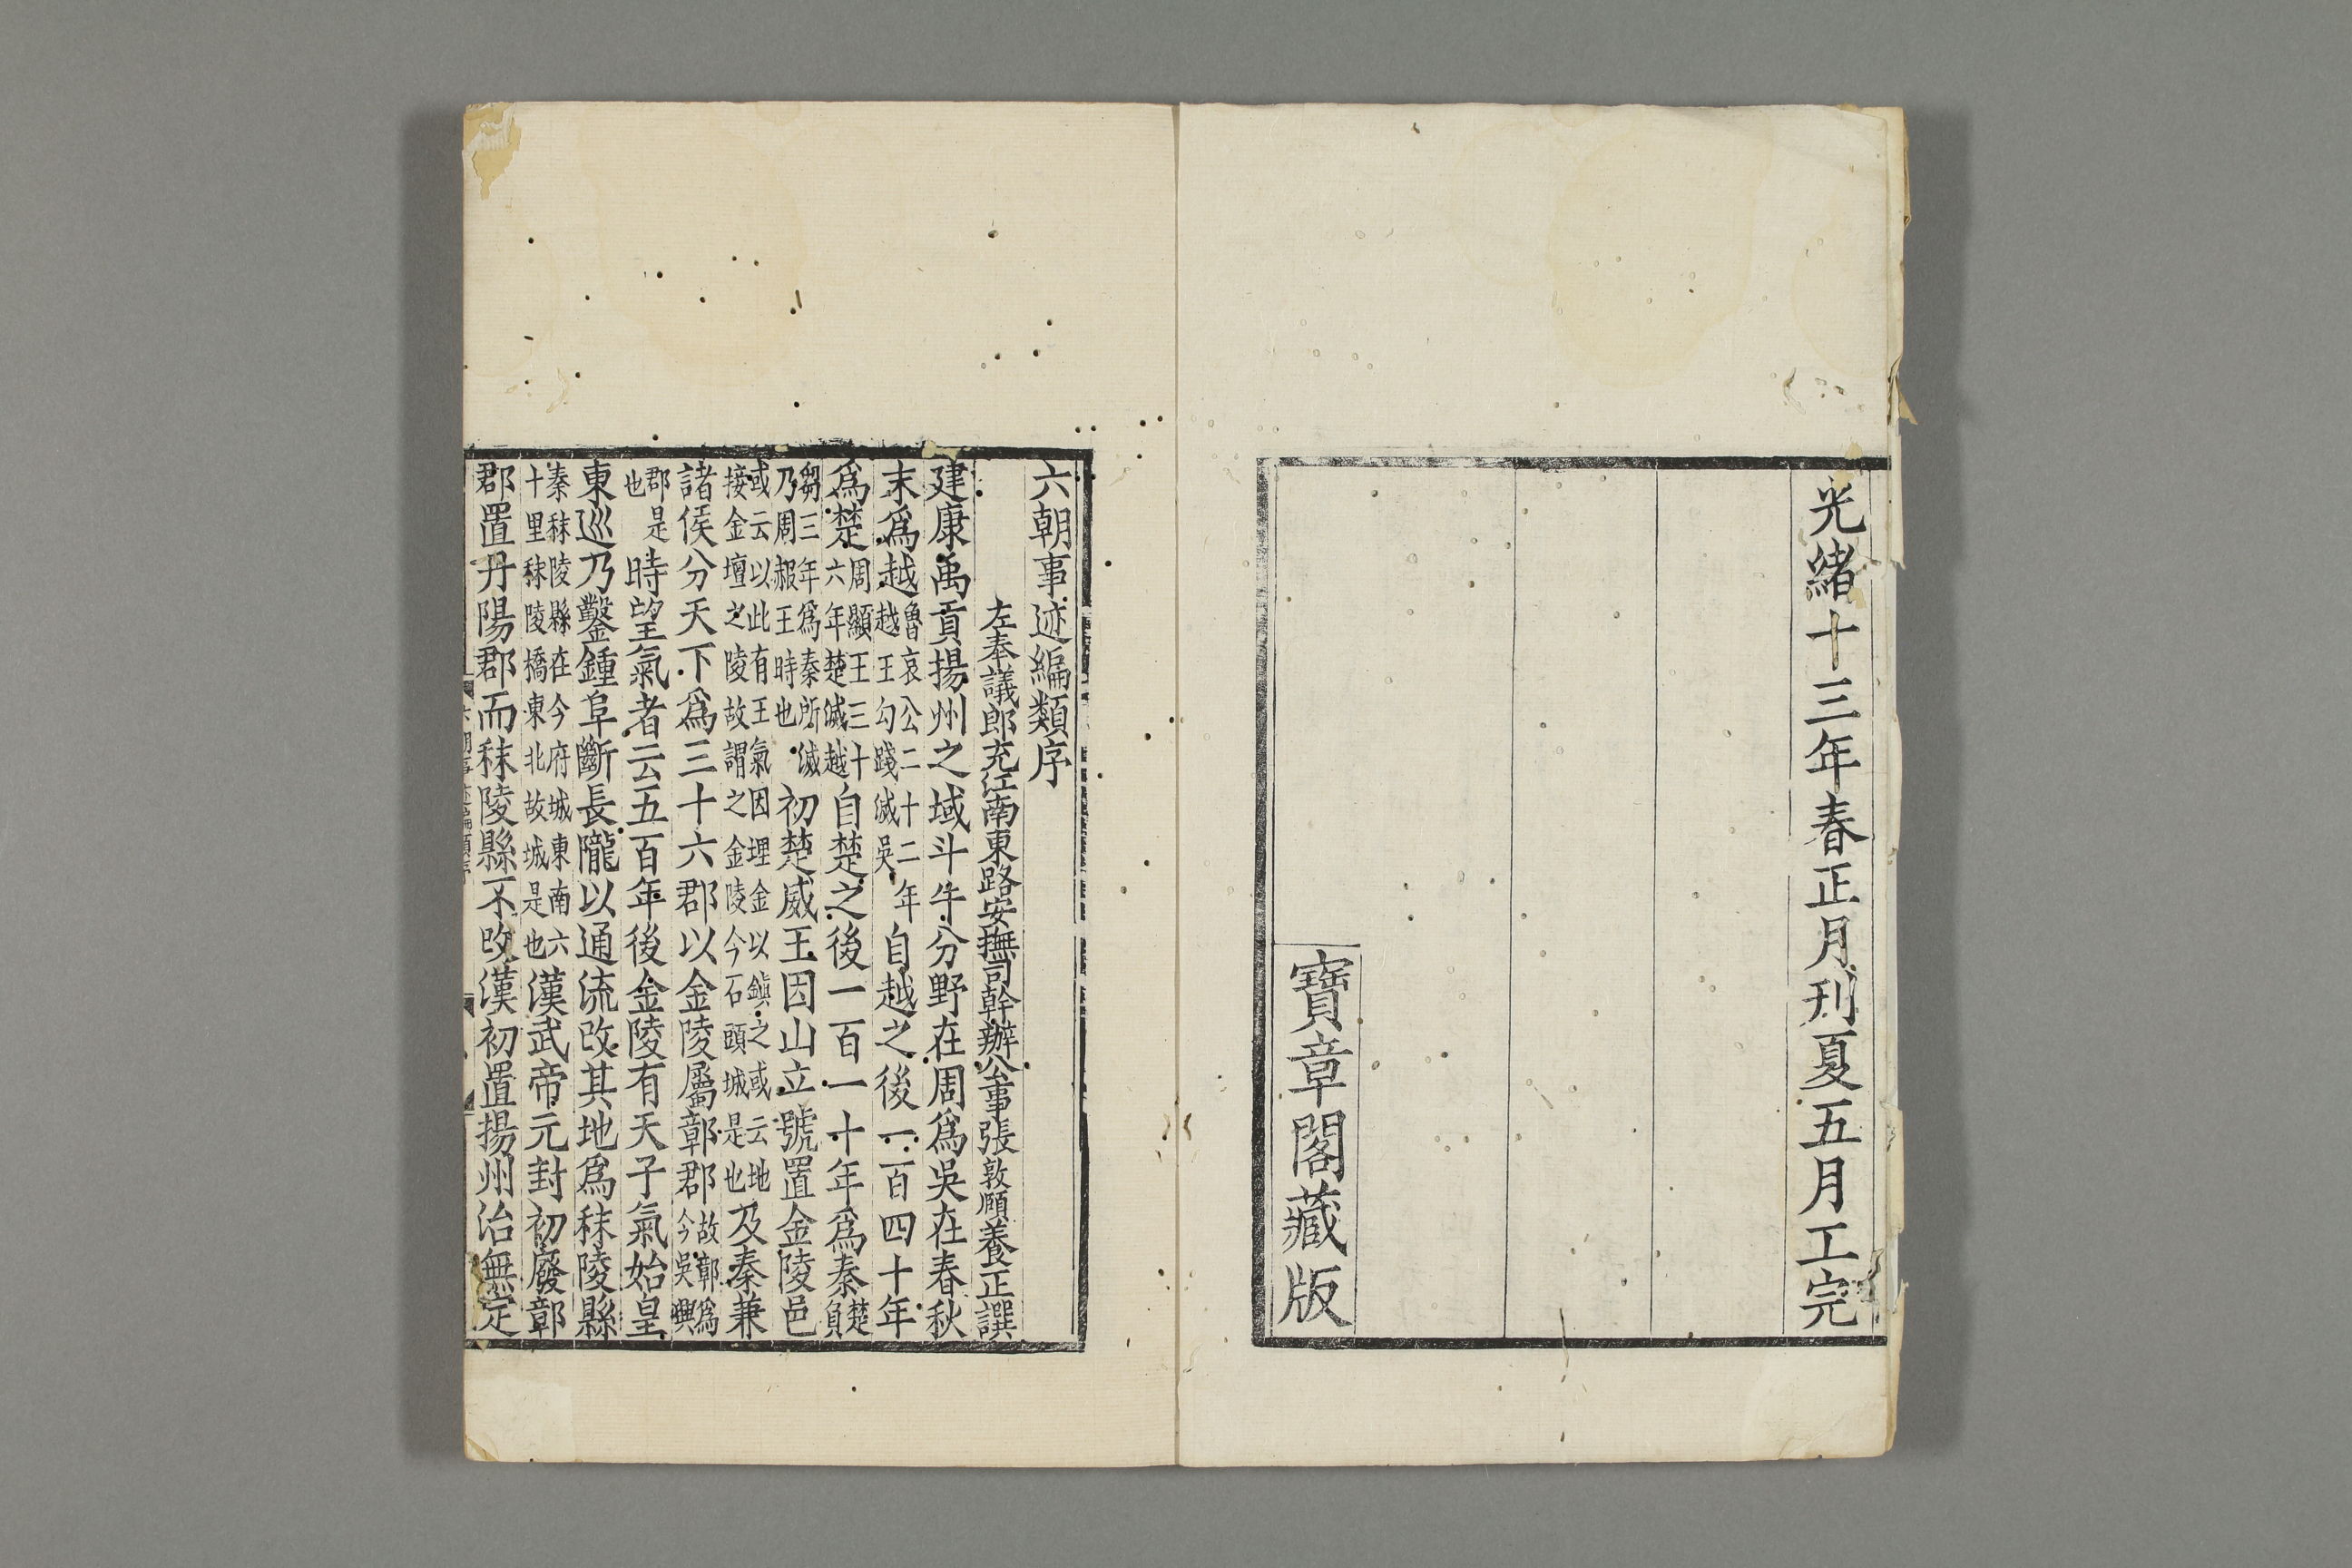 光緒十三年春正月刊夏五月工完
寶章閣藏版
六朝事迹編類序
左奉議郎充江南東路安撫司幹辦公事張敦頤養正譔
建康禹貢揚州之域斗牛分野在周爲吳在春秋
末爲越魯哀公二十二年越王勾踐滅吳自越之後一百四十年
爲楚周顯王三十六年楚滅越自楚之後一百一十年爲秦楚負
芻三年爲秦所滅乃周赧王時也初楚威王因山立號置金陵邑
或云以此有王氣因埋金以鎮之或云地接金壇之陵故謂之金陵今石頭城是也及秦兼
諸侯分天下爲三十六郡以金陵屬鄣郡故鄣爲今吳興
郡是也時望氣者云五百年後金陵有天子氣始皇
東巡乃鑿鍾阜斷長隴以通流改其地爲秣陵縣
秦秣陵縣在今府城東南六十里秣陵橋東北故城是也漢武帝元封初廢鄣
郡置丹陽郡而秣陵縣不改漢初置揚州治無定